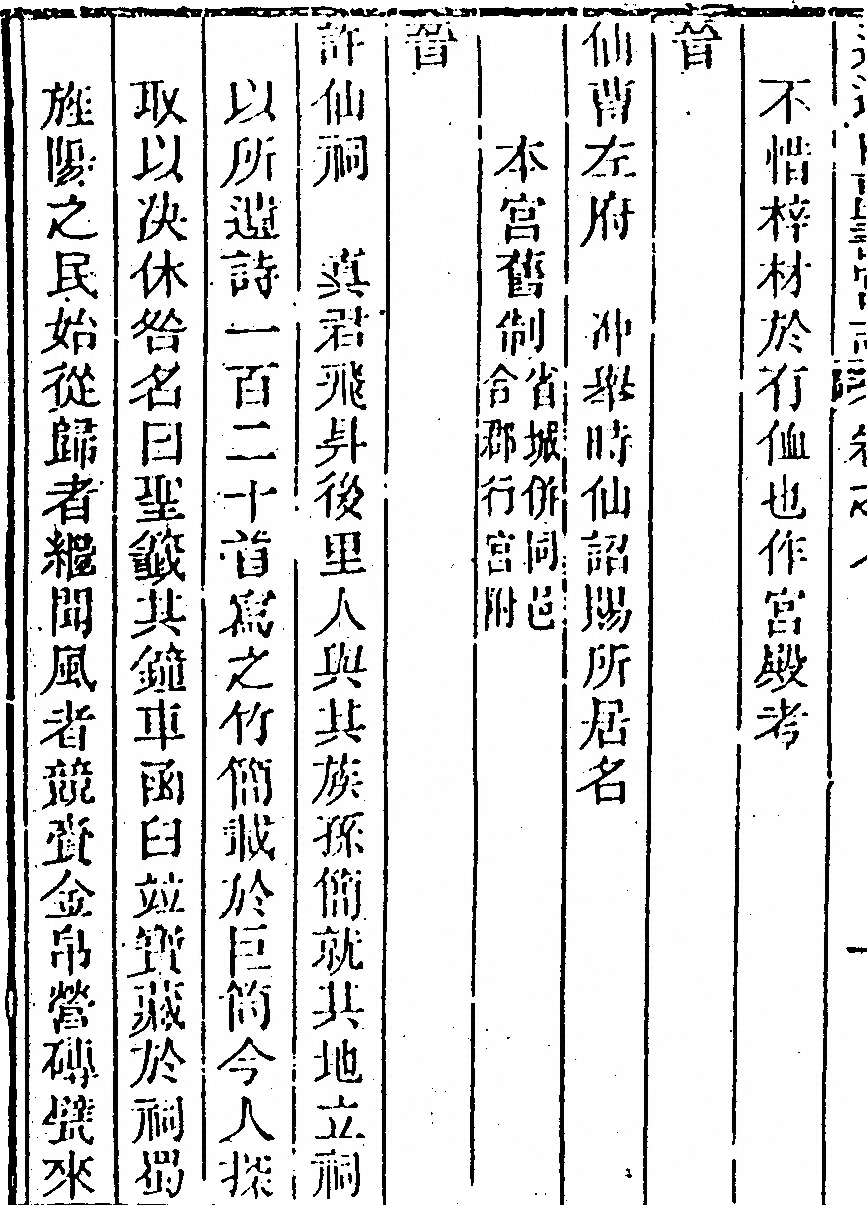 不惜梓材於有恤也作宮殿考
晉
仙曹左府　冲舉時仙詔賜所居名
本宮舊制省城併同邑合郡行宮附
晉
許仙祠　真君飛昇後里人與其族孫簡就其地立祠
以所遺詩一百二十首寫之竹簡載於巨筒今人探
取以决休咎名曰聖籤其鐘車函臼並寶藏於祠蜀
旌陽之民始從歸者繼聞風者競賫金帛營磚甓來